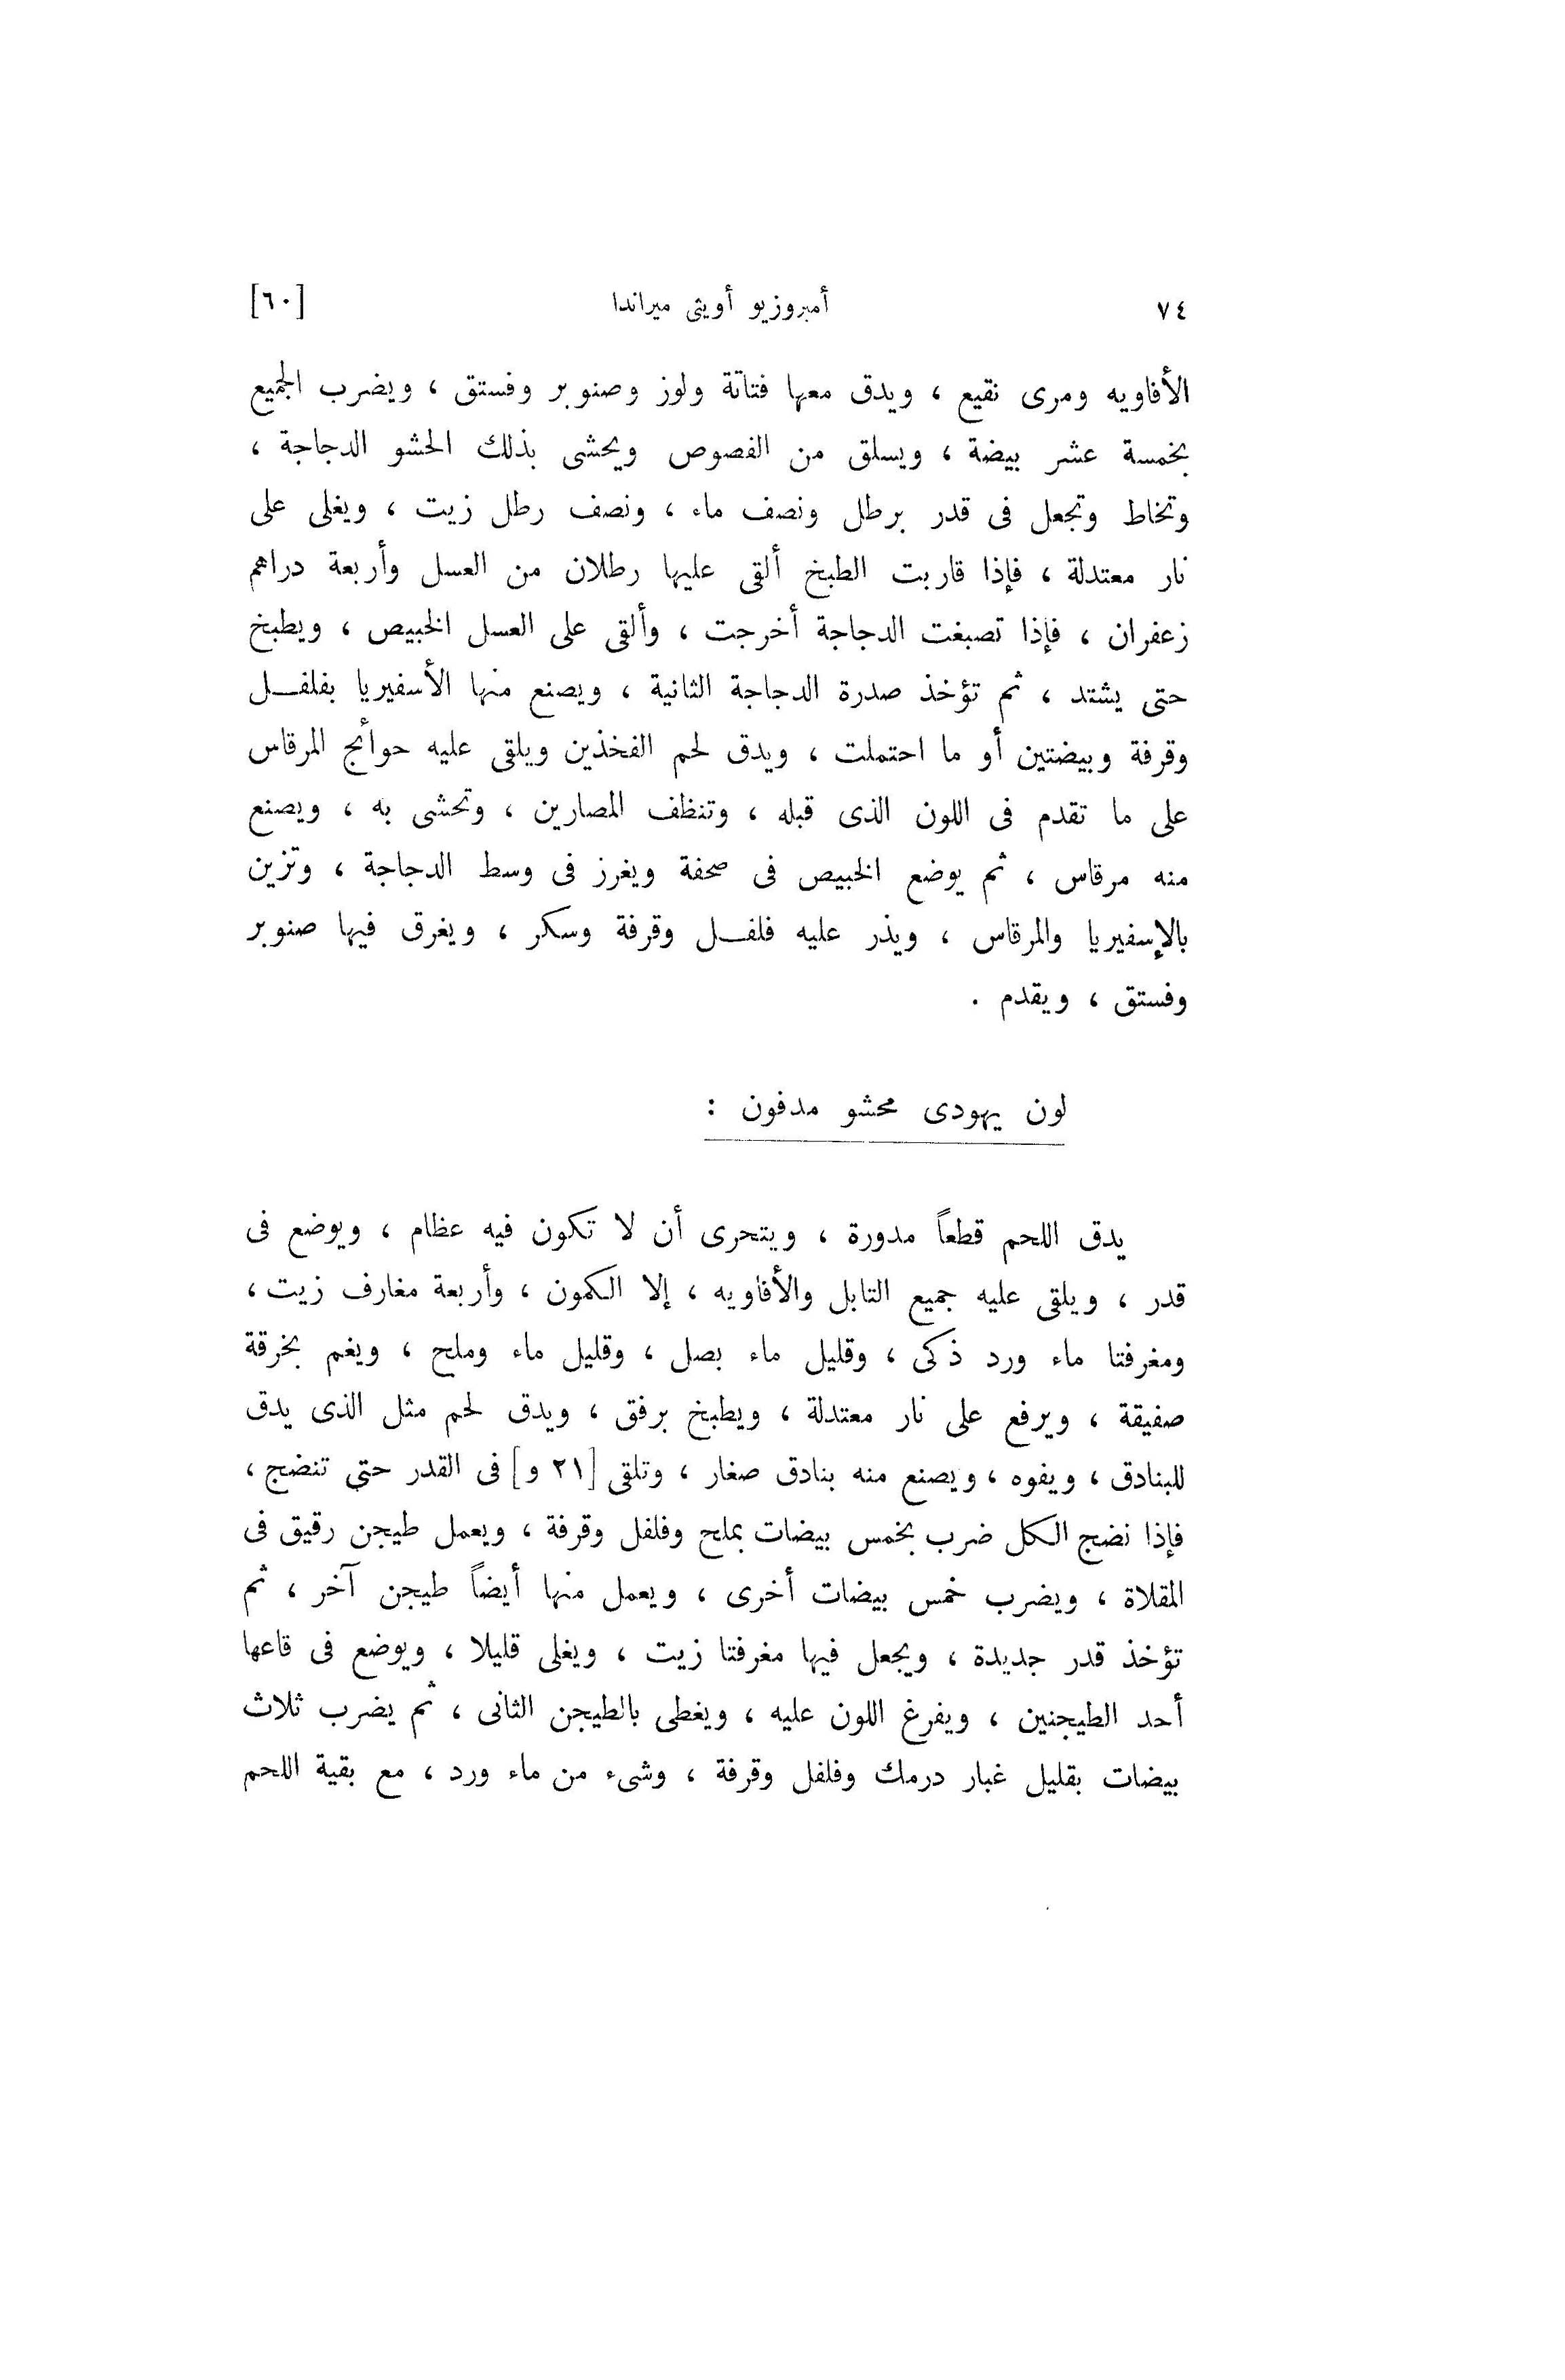 ٧٤ أمبروزيو أويثى ميراندا [٦٠]
الأفاويه ومرى نقيع ، ويدق معها فتاتة ولوز وصنوبر وفستق ، ويضرب الجميع
بخمسة عشر بيضة ، ويسلق من الفصوص ويحشى بذلك الحشو الدجاجة ،
وتخاط وتجعل فى قدر برطل ونصف ماء ، ونصف رطل زيت ، ويغلى على
نار معتدلة ، فإذا قاربت الطبخ ألقى عليها رطلان من العسل وأربعة دراهم
زعفران ، فإذا تصبغت الدجاجة أخرجت ، وألقى على العسل الخبيص ، ويطبخ
حتى يشتد ، ثم تؤخذ صدرة الدجاجة الثانية ، ويصنع منها الأسفيريا بفلفـــل
وقرفة وبيضتين أو ما احتملت ، ويدق لحم الفخذين ويلقى عليه حوائج المرقاس
على ما تقدم فى اللون الذى قبله ، وتنظف المصارين ، وتحشى به ، ويصنع
منه مرقاس ، ثم يوضع الخبيص فى صحفة ويغرز فى وسط الدجاجة ، وتزين
بالإسفيريا والمرقاس ، ويذر عليه فلفـــل وقرفة وسكر ، ويغرق فيها صنوبر
وفستق ، ويقدم .
لون يهودى محشو مدفون :
يدق اللحم قطعاً مدورة ، ويتحرى أن لا تكون فيه عظام ، ويوضع فى
قدر ، ويلقى عليه جميع التابل والأفاويه ، إلا الكمون ، وأربعة مغارف زيت ،
ومغرفتا ماء ورد ذكى ، وقليل ماء بصل ، وقليل ماء وملح ، ويغم بخرقة
صفيقة ، ويرفع على نار معتدلة ، ويطبخ برفق ، ويدق لحم مثل الذى يدق
للبنادق ، ويفوه ، ويصنع منه بنادق صغار ، وتلقى [٢١ و] فى القدر حتى تنضج ،
فإذا نضج الكل ضرب بخمس بيضات بملح وفلفل وقرفة ، ويعمل طيجن رقيق فى
المقلاة ، ويضرب خمس بيضات أخرى ، ويعمل منها أيضاً طيجن آخر ، ثم
تؤخذ قدر جديدة ، ويجعل فيها مغرفتا زيت ، ويغلى قليلا ، ويوضع فى قاعها
أحد الطيجنين ، ويفرغ اللون عليه ، ويغطى بالطيجن الثانى ، ثم يضرب ثلاث
بيضات بقليل غبار درمك وفلفل وقرفة ، وشىء من ماء ورد ، مع بقية اللحم